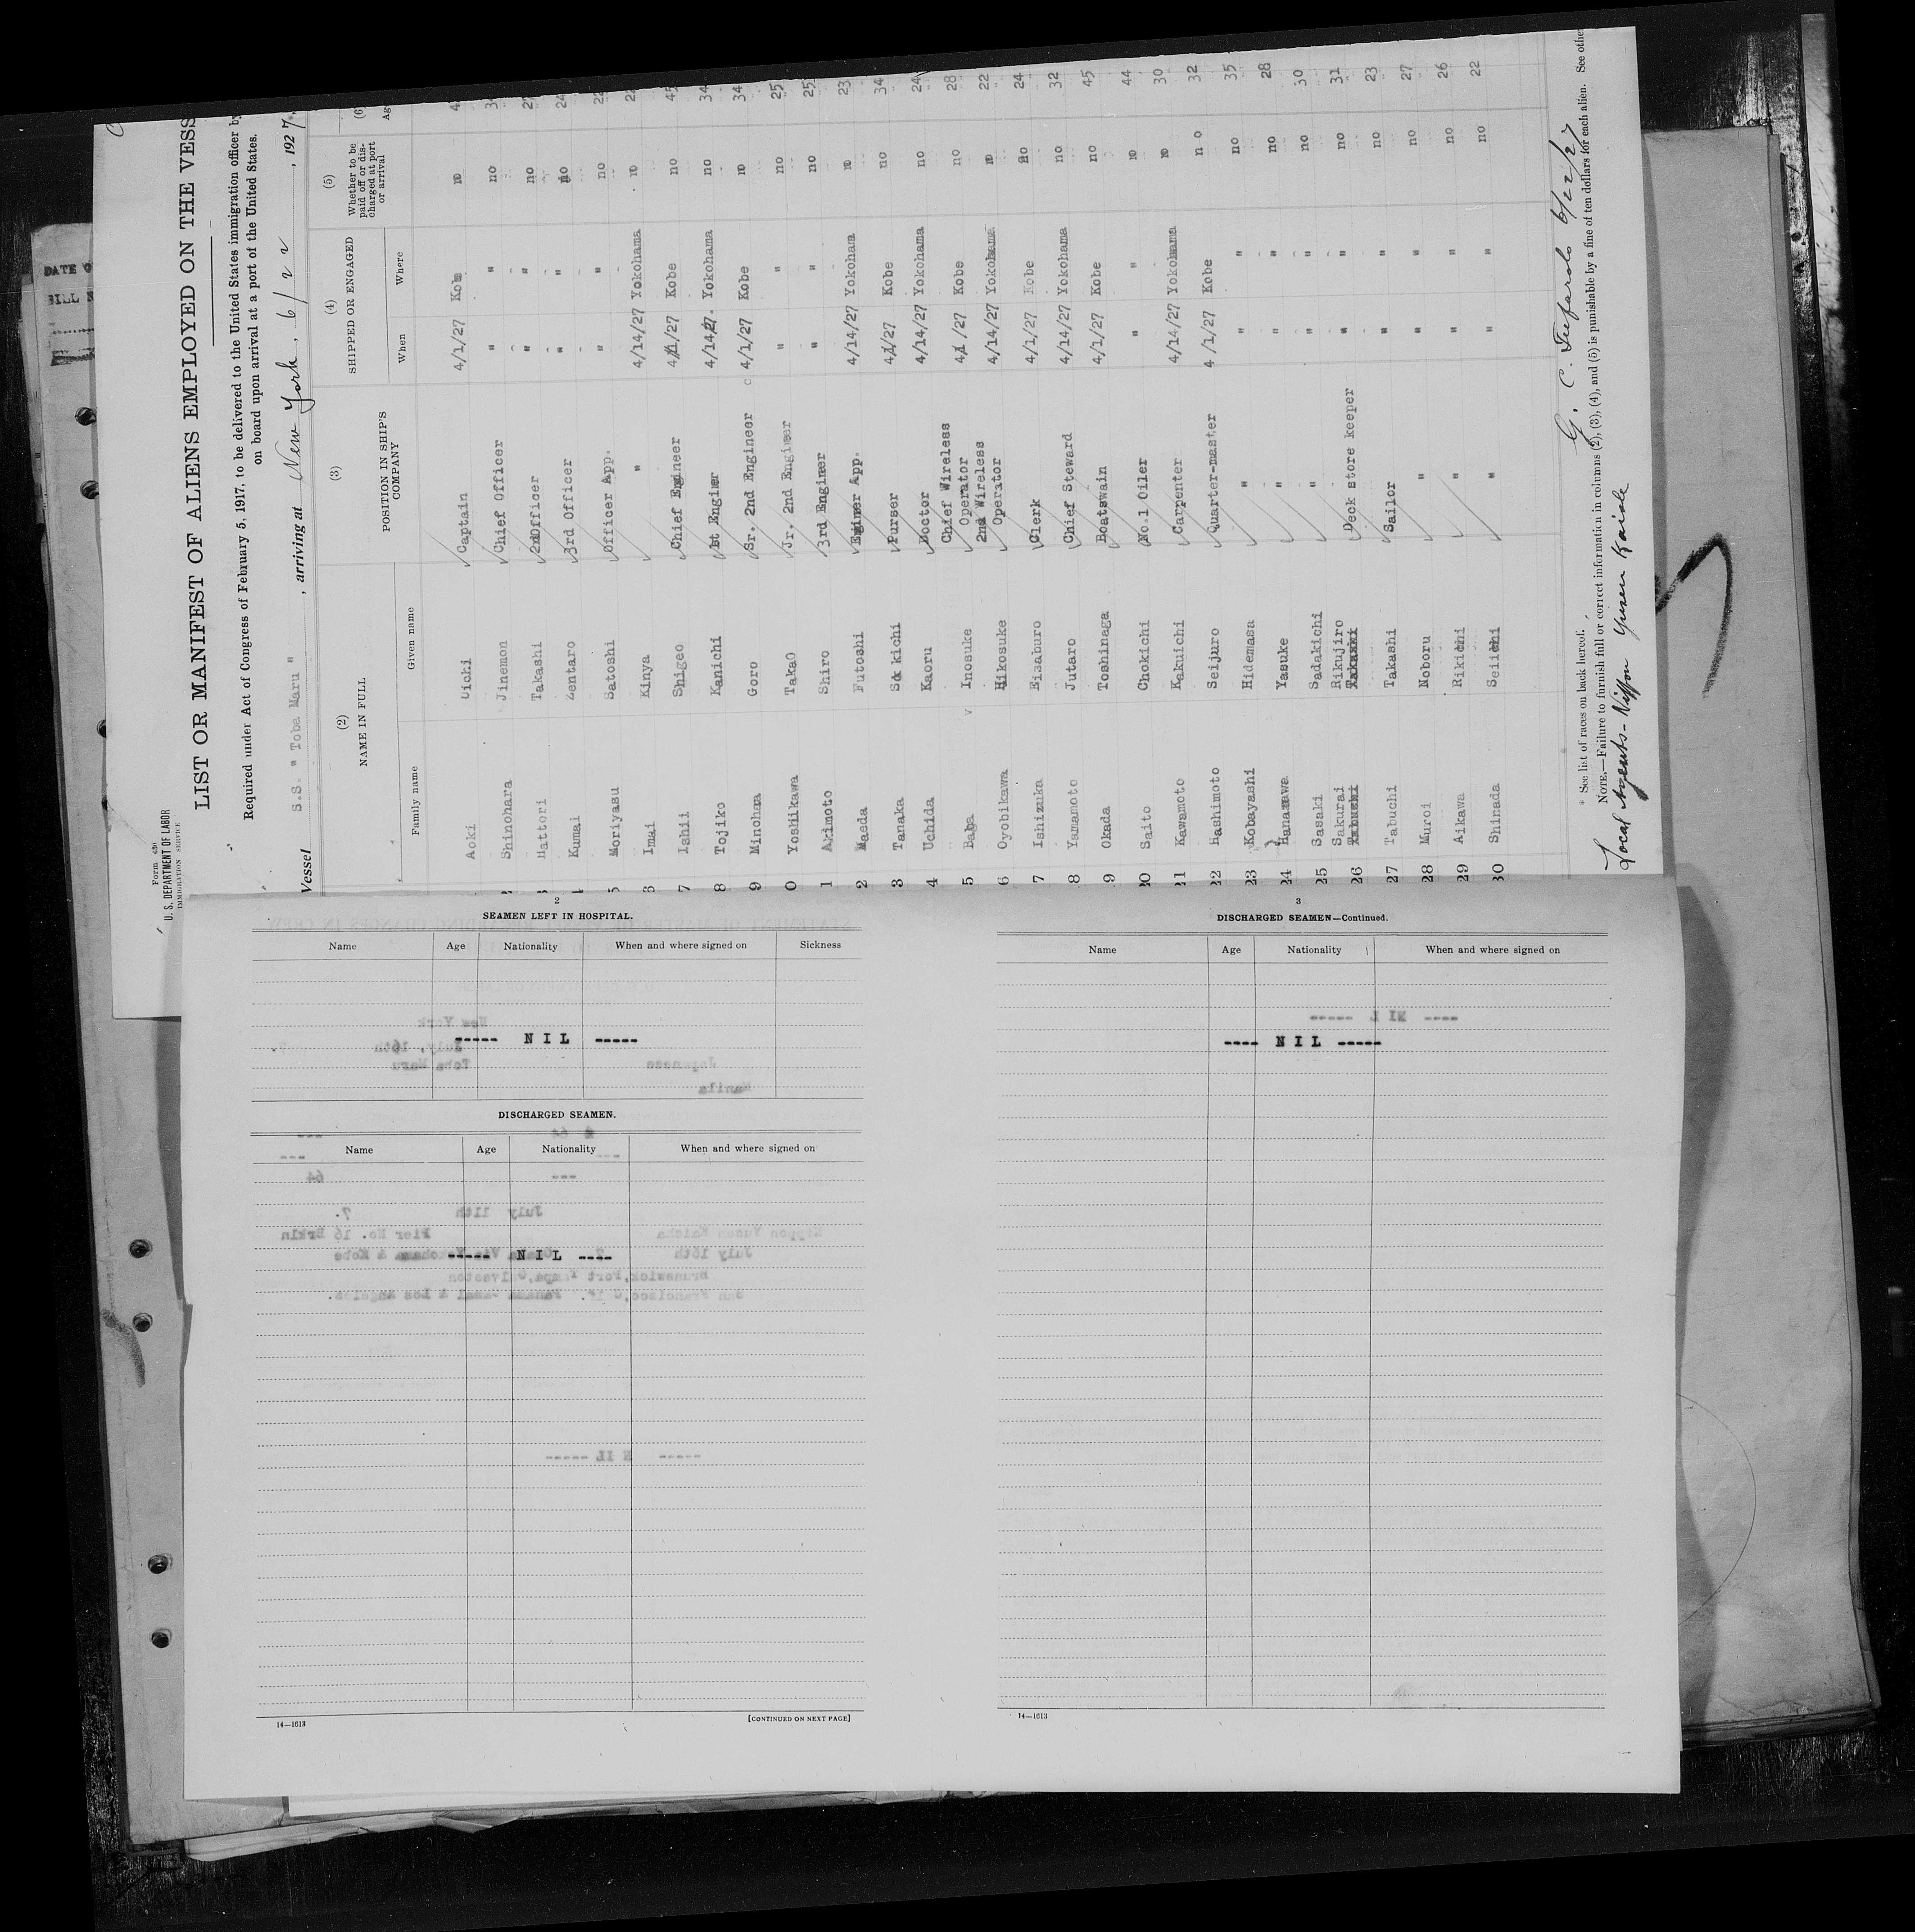 Form 680
U. S. DEPARTMENT OF LABOR
IMMIGRATION SERVICE
LIST OR MANIFEST OF ALIENS EMPLOYED ON THE VESS
Required under Act of Congress of February 5, 1917, to be delivered to the United States immigration officer by
on board upon arrival at a port of the United States.
Vessel S.S. " Toba Maru " , arriving at New York. 6/22 , 1927,
(2) (3) (4) (5) (6)
NAME IN FULL POSITION IN SHIP'S COMPANY SHIPPED OR ENGAGED Whether to be paid off or discharged at port or arrival
Family name Given name When Where
Aoki Uichi Captain 4/1/27 Kobe no
Shinohara Jinemon Chief Officer " " no
Hattori Takashi 2nd Officer " " no
Kumai Zentaro 3rd Officer " " no 24
5 Moriyasu Satoshi Officer App. " " no 22
6 Imai Kinya " 4/14/27 Yokohama no
7 Ishii Shigeo Chief Engineer 4/1/27 Kobe no
8 Tojiko Kanichi 1st Engineer 4/14/27. Yokohama no 34
9 Minohara Goro Sr. 2nd Engineer 4/1/27 Kobe no 34
0 Yoshikawa Takao Jr. 2nd Engineer " " no 25
1 Akimoto Shiro 3rd Engineer " " no 25
2 Maeda Futoshi Engineer App. 4/14/27 Yokohama no 23
3 Tanaka Sakichi Purser 4/1/27 Kobe no 34
4 Uchida Kaoru Doctor 4/14/27 Yokohama no 24
5 Baba Inosuke Chief Wireless Operator 4/1/27 Kobe no 28
6 Oyobikawa Hikosuke 2nd Wireless Operator 4/14/27 Yokohama no 22
7 Ishizuka Eisaburo Clerk 4/1/27 Kobe no 24
8 Yamamoto Jutaro Chief Steward 4/14/27 Yokohama no 32
9 Okada Toshinaga Boatswain 4/1/27 Kobe no 45
20 Saito Chokichi No.1 Oiler " " no 44
21 Kawamoto Kakuichi Carpenter 4/14/27 Yokohama no 30
22 Hashimoto Seijuro Quarter-master 4/1/27 Kobe no 32
23 Kobayashi Hidemasa " " " no 35
24 Hanazawa Yasuke " " " no 28
25 Sasaki Sadakichi " " " no 30
26 Sakurai Rikujiro Deck store keeper " " no 31
27 Tabuchi Takashi Sailor " " no 23
28 Muroi Noboru " " " no 27
29 Aikawa Rikichi " " " no 26
30 Shinada Seiichi " " " no 22
* See list of races on back hereof.
NOTE.—Failure to furnish full or correct information in columns (2), (3), (4), and (5) is punishable by a fine of ten dollars for each alien. See othe
Local Agents- Nippon Yusen Kaisha
6/22/27
DATE O
BILL
2
SEAMEN LEFT IN HOSPITAL.
Name Age Nationality When and where signed on Sickness
----- N I L -----
DISCHARGED SEAMEN.
Name Age Nationality When and where signed on
----- N I L ----
14—1613
[CONTINUED ON NEXT PAGE]
3
DISCHARGED SEAMEN—Continued.
Name Age Nationality When and where signed on
---- N I L -----
14—1613